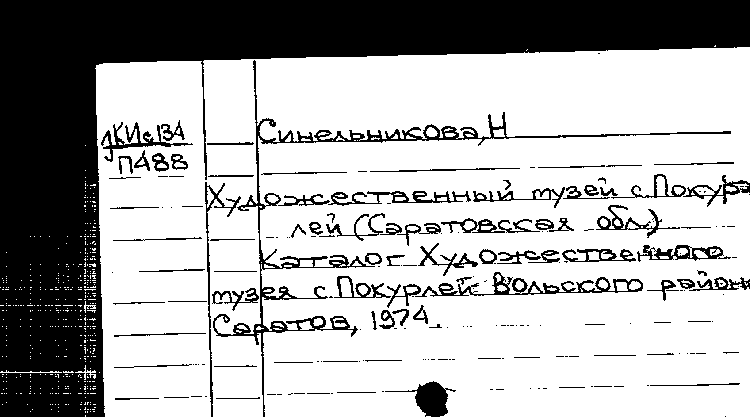 КИс134
П488
Синельникова, Н
Художественный музей с. Покур
лей (Саратовская обл.)
Каталог Художественного
музея с. Покурлей Вольского район
Саратов, 1974.